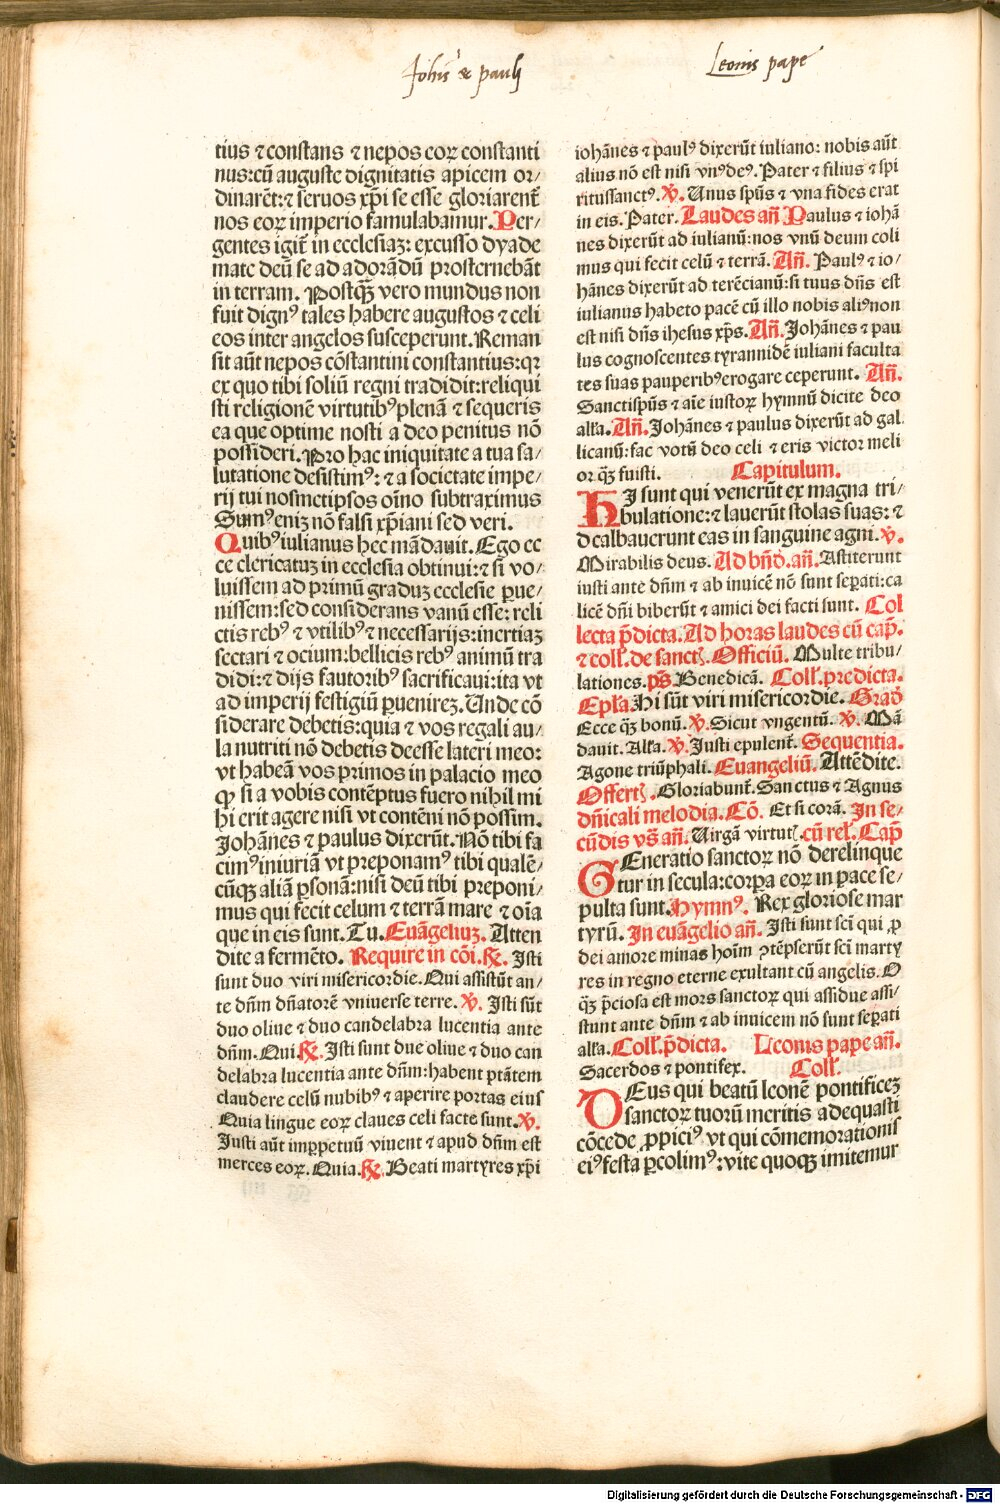 Joh̄is & pauli
Leonis pape
tius ⁊ constans ⁊ nepos eoꝝ constanti
nus:cū auguste dignitatis apicem or/
dinarēt:⁊ seruos xp̄i se esse gloriarent̄
nos eoꝝ imperio famulabamur. Per/
gentes igit̄ in ecclesiaꝫ: excusso dyade
mate deū se ad adorādū prosternebāt
in terram. Postqꝫ̄ vero mundus non
fuit dignꝰ tales habere augustos ⁊ celi
eos inter angelos susceperunt. Reman
sit aūt nepos cōstantini constantius:qꝛ
ex quo tibi soliū regni tradidit:reliqui
sti religionē virtutibꝰ plenā ⁊ sequeris
ea que optime nosti a deo penitus nō
possideri. Pro hac iniquitate a tua sa/
lutatione destitimꝰ: ⁊ a societate impe/
rij tui nosmetipsos oīno subtraximus
Sumꝰ enīꝫ nō falsi xp̄iani sed veri.
Quibꝰ iulianus hec mādauit. Ego ec
ce clericatuꝫ in ecclesia obtinui:⁊ si vo/
luissem ad primū graduꝫ ecclesie ꝑue/
nissem:sed considerans vanū esse: reli
ctis rebꝰ ⁊ vtilibꝰ ⁊ necessarijs:inertiaꝫ
sectari ⁊ ocium:bellicis rebꝰ animū tra
didi:⁊ dijs fautoribꝰ sacrificaui:ita vt
ad imperij festigiū ꝑuenireꝫ. Unde cō
siderare debetis:quia ⁊ vos regali au/
la nutriti nō debetis deesse lateri meo:
vt habeā vos primos in palacio meo
qꝙ si a vobis contēptus fuero nihil mi
hi erit agere nisi vt contēni nō possim.
Johānes ⁊ paulus dixerūt. Nō tibi fa
cimꝰ iniuriā vt preponamꝰ tibi qualē/
cūqꝫ aliā ꝑsonā:nisi deū tibi preponi/
mus qui fecit celum ⁊ terrā mare ⁊ oīa
que in eis sunt. Tu. Euāgeliuꝫ. Atten
dite a fermēto. Require in cōi. ℟. Isti
sunt duo viri misericordie. Qui assistūt an/
te dn̄m dn̄atorē vniuerse terre. ℣. Isti sūt
duo oliue ⁊ duo candelabra lucentia ante
dn̄m. Qui. ℟. Isti sunt due oliue ⁊ duo can
delabra lucentia ante dn̄m:habent ptātem
claudere celū nubibꝰ ⁊ aperire portas eius
Quia lingue eoꝝ claues celi facte sunt. ℣.
Justi aūt imꝑpetuū viuent ⁊ apud dn̄m est
merces eoꝝ. Quia. ℟. Beati martyres xp̄i
iohānes ⁊ paulꝰ dixerūt iuliano: nobis aūt
alius nō est nisi vnꝰ deꝰ. Pater ⁊ filius ⁊ spi
ritussanctꝰ. ℣. Unus sp̄us ⁊ vna fides erat
in eis. Pater. Laudes an̄ Paulus ⁊ iohā
nes dixerūt ad iulianū:nos vnū deum coli
mus qui fecit celū ⁊ terrā. An̄. Paulꝰ ⁊ io/
hānes dixerūt ad terēcianū:si tuus dn̄s est
iulianus habeto pacē cū illo nobis aliꝰ non
est nisi dn̄s ihesus xp̄s. An̄. Johānes ⁊ pau
lus cognoscentes tyrannidē iuliani faculta
tes suas pauperibꝰ erogare ceperunt. An̄.
Sanctisp̄us ⁊ aīe iustoꝝ hymnū dicite deo
all̄a. An̄. Johānes ⁊ paulus dixerūt ad gal
licanū:fac votū deo celi ⁊ eris victor meli
or qꝫ̄ fuisti. Capitulum.
HI sunt qui venerūt ex magna tri/
bulatione:⁊ lauerūt stolas suas: ⁊
dealbauerunt eas in sanguine agni. ℣.
Mirabilis deus. Ad bn̄d. an̄. Astiterunt
iusti ante dn̄m ⁊ ab inuicē nō sunt seꝑati:ca
licē dn̄i biberūt ⁊ amici dei facti sunt. Col
lecta p̄dicta. Ad horas laudes cū cap̄.
⁊ coll̄. de sanctꝭ. Officiū. Multe tribu/
lationes. ps̄ Benedicā. Coll̄. predicta.
Epl̄a. Hi sūt viri misericordie. Grad̄
Ecce qꝫ̄ bonū. ℣. Sicut vngentū. ℣. Mā
dauit. All̄a. ℣. Justi epulent̄. Sequentia.
Agone triūphali. Euangeliū. Attēdite.
Offertꝭ. Gloriabunt̄. Sanctus ⁊ Agnus
dn̄icali melodia. Cō. Et si corā. In se/
cūdis vs̄ an̄. Uirgā virtutꝭ. cū rel̄. Cap̄
GEneratio sanctoꝝ nō derelinque
tur in secula:corpa eoꝝ in pace se/
pulta sunt. Hymnꝰ. Rex gloriose mar
tyrū. In euāgelio an̄. Isti sunt scī qui ꝓ
dei amore minas hoīm ꝯtēpserūt scī marty
res in regno eterne exultant cū angelis. O
qꝫ̄ p̄ciosa est mors sanctoꝝ qui assidue assi/
stunt ante dn̄m ⁊ ab inuicem nō sunt seꝑati
all̄a. Coll̄. p̄dicta. Leonis pape an̄.
Sacerdos ⁊ pontifex. Coll̄.
DEus qui beatū leonē pontificeꝫ
sanctoꝝ tuorū meritis adequasti
cōcede ꝓpiciꝰ vt qui cōmemorationis
eiꝰ festa ꝑcolimꝰ:vite quoqꝫ imitemur
Digitalisierung gefördert durch die Deutsche Forschungsgemeinschaft - DFG